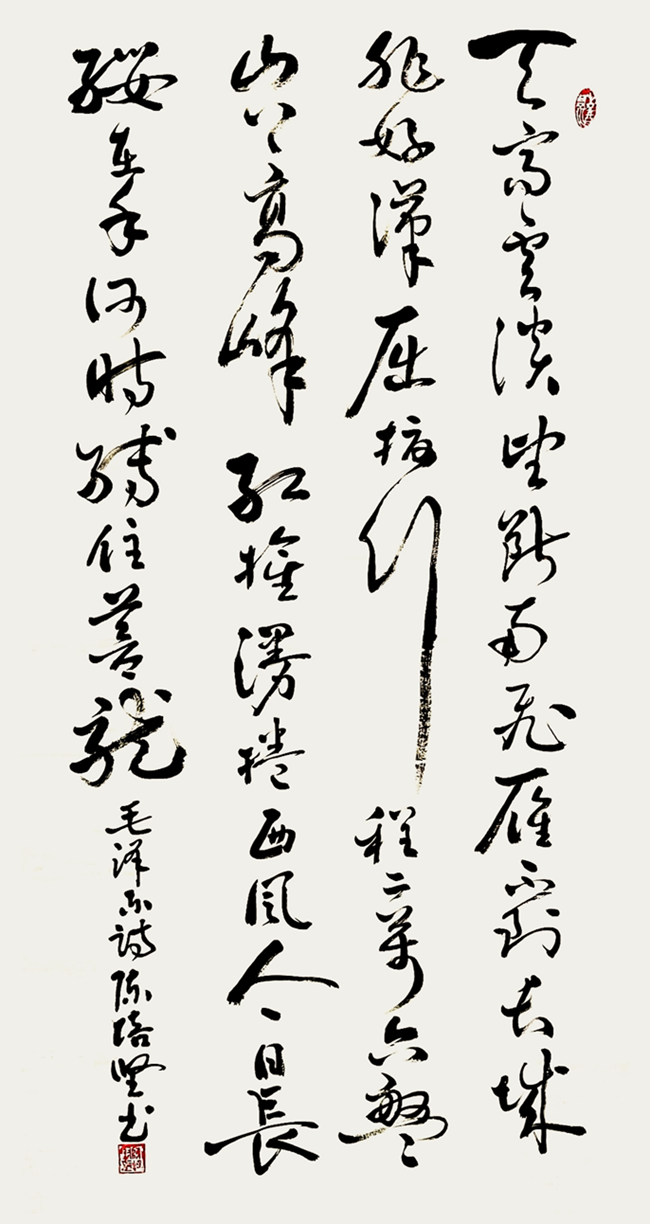 天高雲淡望斷南飛雁不到长城
非好漢屈指行程二萬六盤
山上高峰紅旗漫捲西風今日長
纓在手何時縛住蒼龍 毛泽东詩陈培坚书